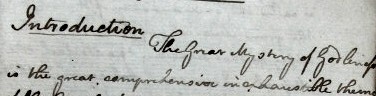 Introduction
The Great Mystery of Godliness
is the great comprehensive inexhaustible theme